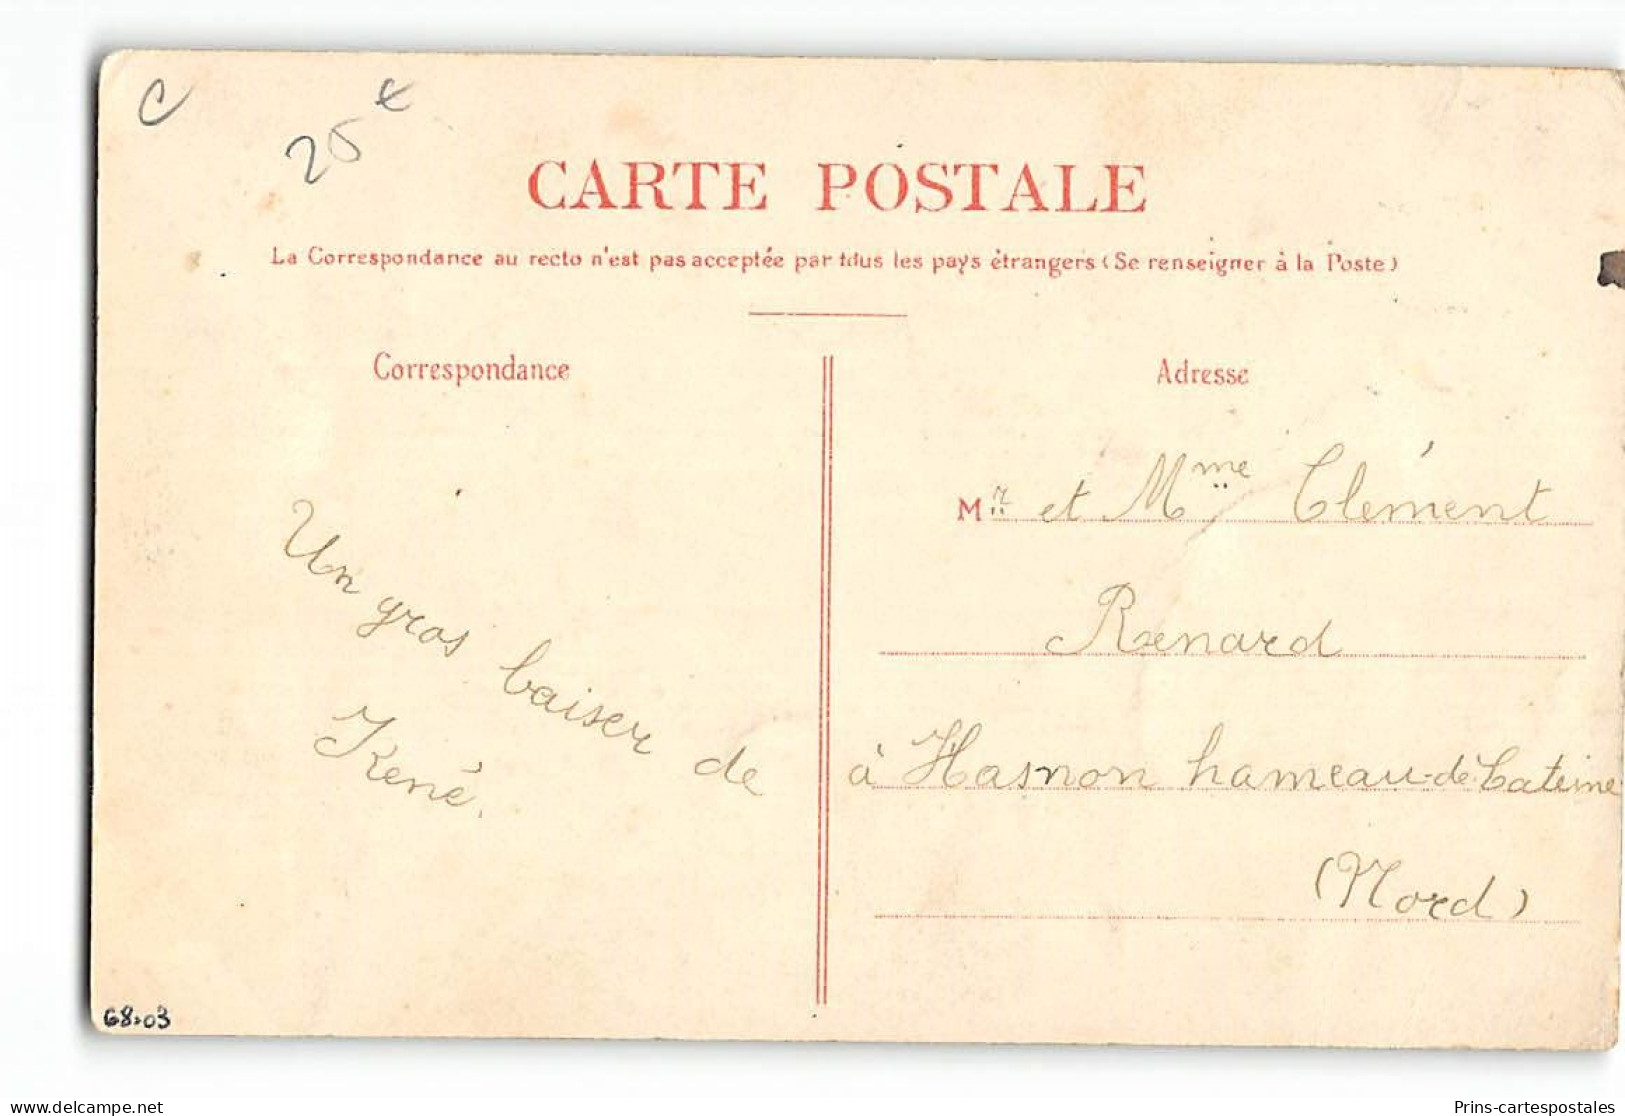 C
25 €
CARTE POSTALE
La Correspondance au recto n'est pas acceptée par tous les pays étrangers (Se renseigner à la Poste)
Correspondance
Un gros baiser de
René.
Adresse
Mr et Mme Clément
Renard
à Hasnon hameau-de-Cateine
(Nord)
68.03
www.delcampe.net
Prins-cartespostales